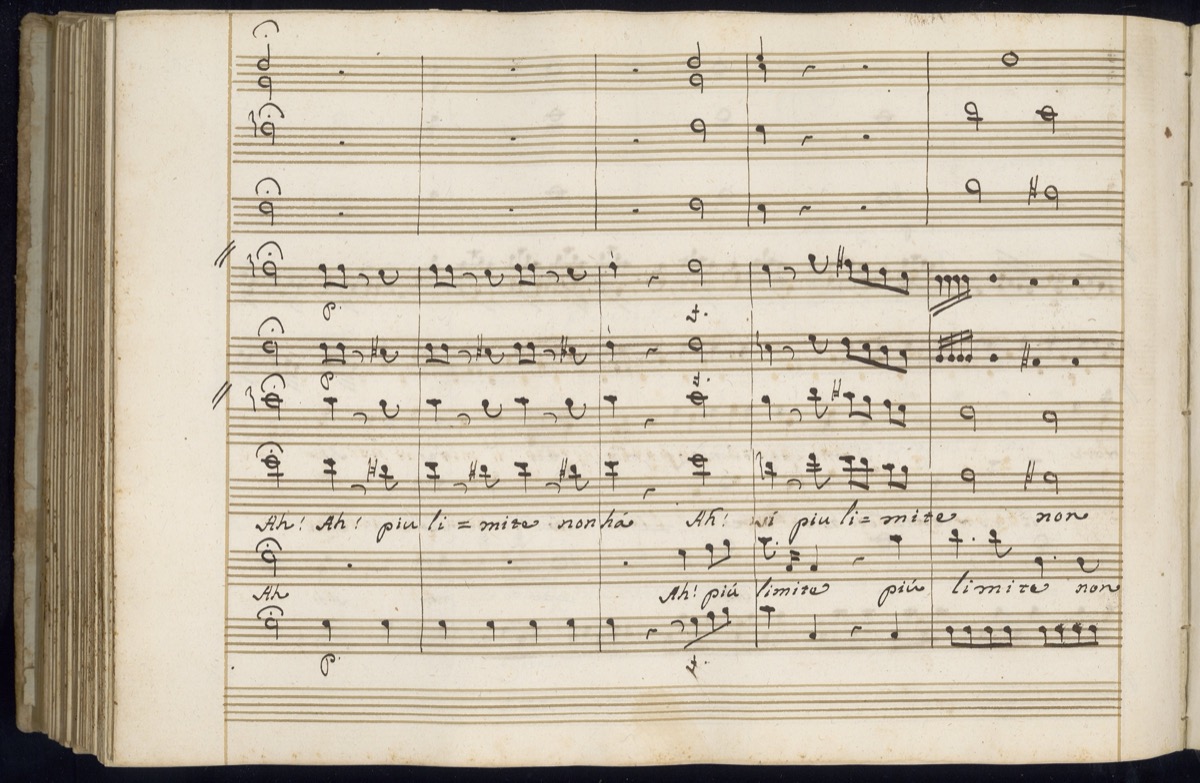 p.
f.
p.
f.
Ah! Ah! piu li = mite non há Ah! piu li = mite non
Ah Ah! piú limite piú limite non
p. f.